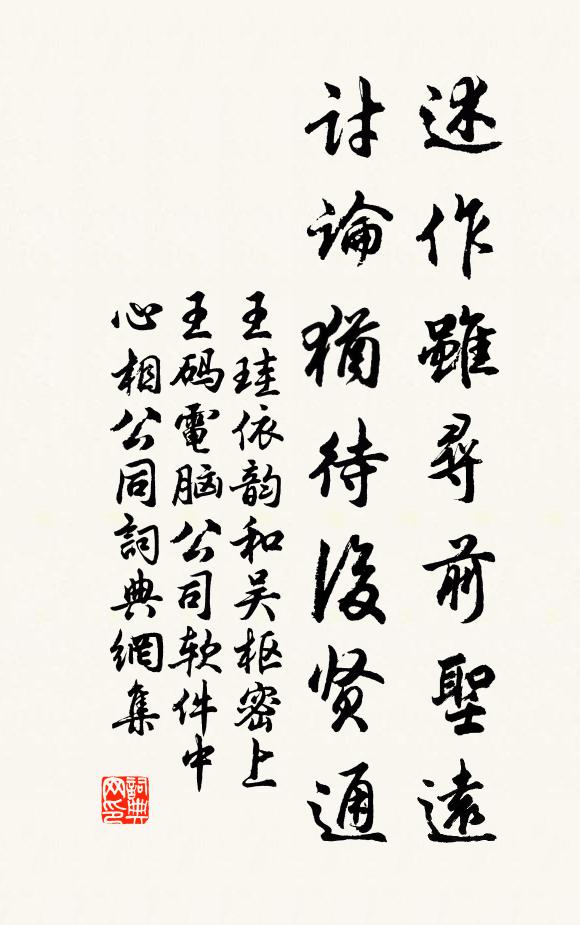 述作雖尋前聖遠
討論猶待後賢通
王珪依韵和吴枢密上
王码電脑公司软件中
心相公同詞典網集
詞典网印